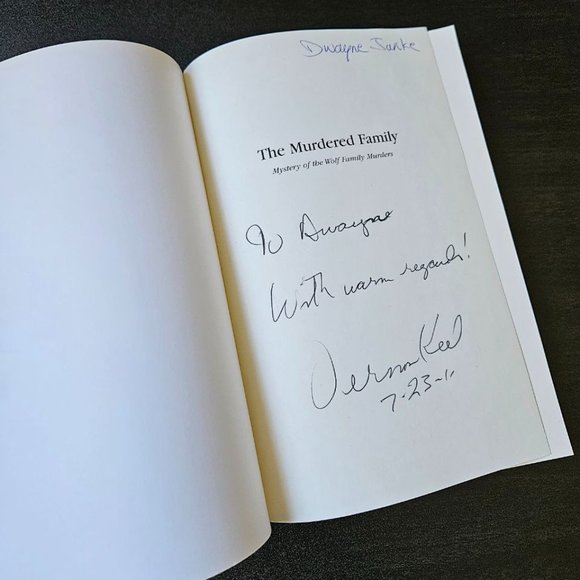 Dwayne Janke
The Murdered Family
Mystery of the Wolf Family Murders
To Dwayne
With warm regards!
Vernon Keel
7-23-11